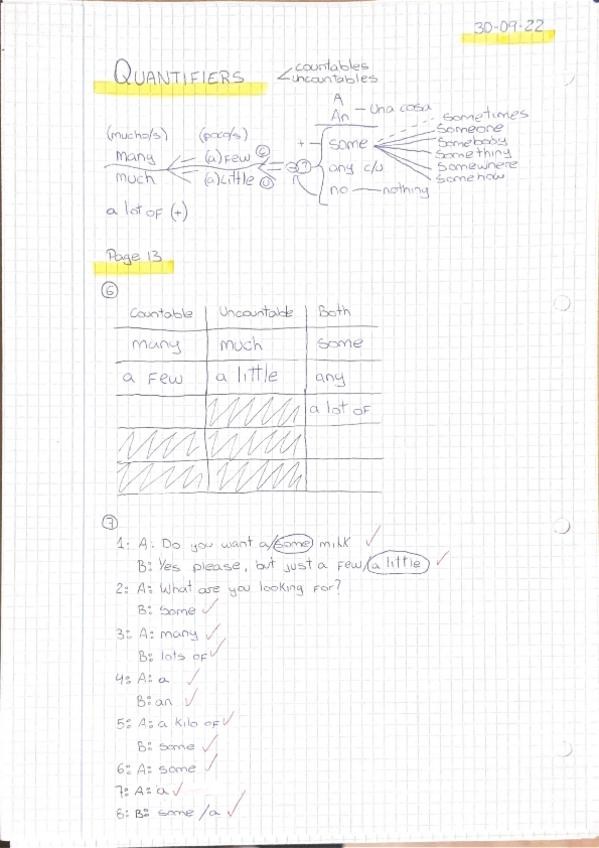 30-09-22
QUANTIFIERS < countables
uncountables
A
An — una cosa
(mucho/s) (poco/s)
many (a) Few
much (a) Little
a lot of (+)
+ some
any c/u
no — nothing
sometimes
someone
somebody
something
somewhere
somehow
Page 13
6
Countable Uncountable Both
many much some
a Few a little any
a lot of
7
1: A: Do you want a/some milk ✓
B: Yes please, but just a few/a little ✓
2: A: What are you looking for?
B: some ✓
3: A: many ✓
B: lots of ✓
4: A: a ✓
B: an ✓
5: A: a kilo of ✓
B: some ✓
6: A: some ✓
7: A: a ✓
8: B: some /a ✓